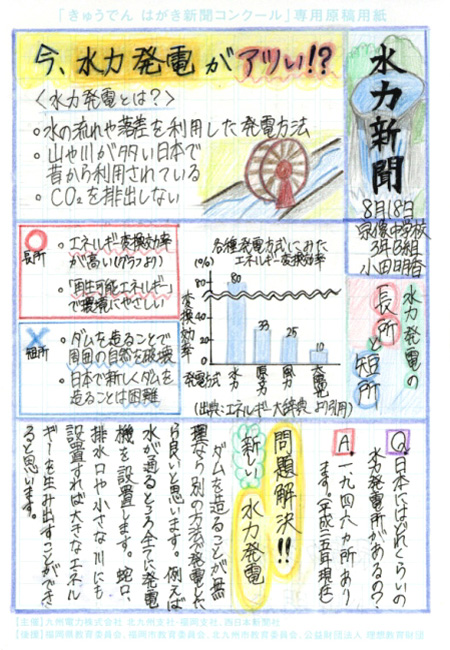 「きゅうでん はがき新聞コンクール」専用原稿用紙
水力新聞
8月18日
宗像中学校
3年B組
小田明香
今、水力発電がアツい!?
<水力発電とは?>
・水の流れや落差を利用した発電方法
・山や川が多い日本で
昔から利用されている
・CO₂を排出しない
水力発電の
長所と
短所
○
長所
・エネルギー変換効率
が高い(グラフより)
・「再生可能エネルギー」
で環境にやさしい
×
短所
・ダムを造ることで
周囲の自然を破壊
・日本で新しくダムを
造ることは困難
各種発電方式にみた
エネルギー変換効率
(%)
変換効率
80
33
25
10
発電方式
水力
原子力
風力
太陽光
(出典:エネルギー大辞典より引用)
Q.日本にはどれくらいの
水力発電所があるの?
A.一、九四六カ所あり
ます。(平成二五年現在)
問題解決!!
新しい
水力発電
ダムを造ることが無
理なら別の方法で発電した
ら良いと思います。例えば
水が通るところ全てに発電
機を設置します。蛇口、
排水口や小さな川にも
設置すれば大きなエネル
ギーを生み出すことができ
ると思います。
【主催】九州電力株式会社 北九州支社・福岡支社、西日本新聞社
【後援】福岡県教育委員会、福岡市教育委員会、北九州市教育委員会、公益財団法人 理想教育財団